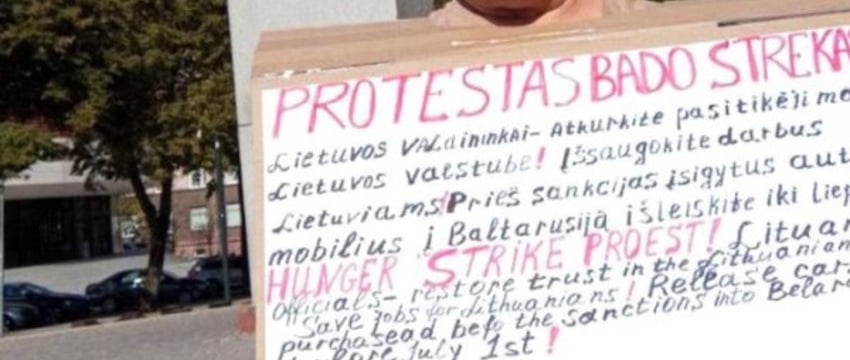 PROTESTAS BADO STREKA
Lietuvos VALdininkai- Atkurkite pasitikėji mo
Lietuvos valstube! Išsaugokite darbus
Lietuviams! Prieš sankcijas įsigytus aut
mobilius į Baltarusiją išleiskite iki liep
HUNGER STRIKE PROEST! Lituan
Officials- restore trust in the Lithuanian
Save jobs for Lithuanians! Release car
purchasead befo the sanctions into Belar
July 1st!